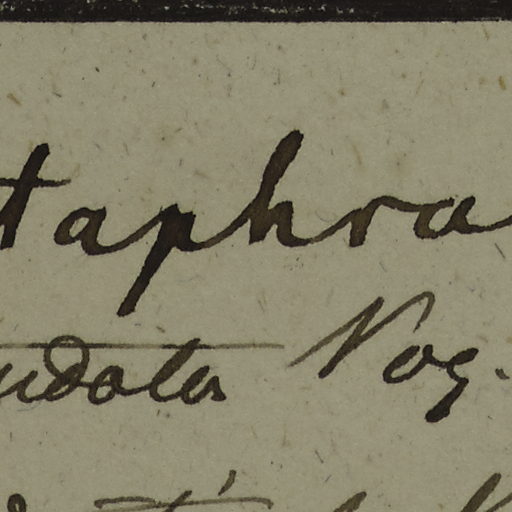 taphra
udata Vog.